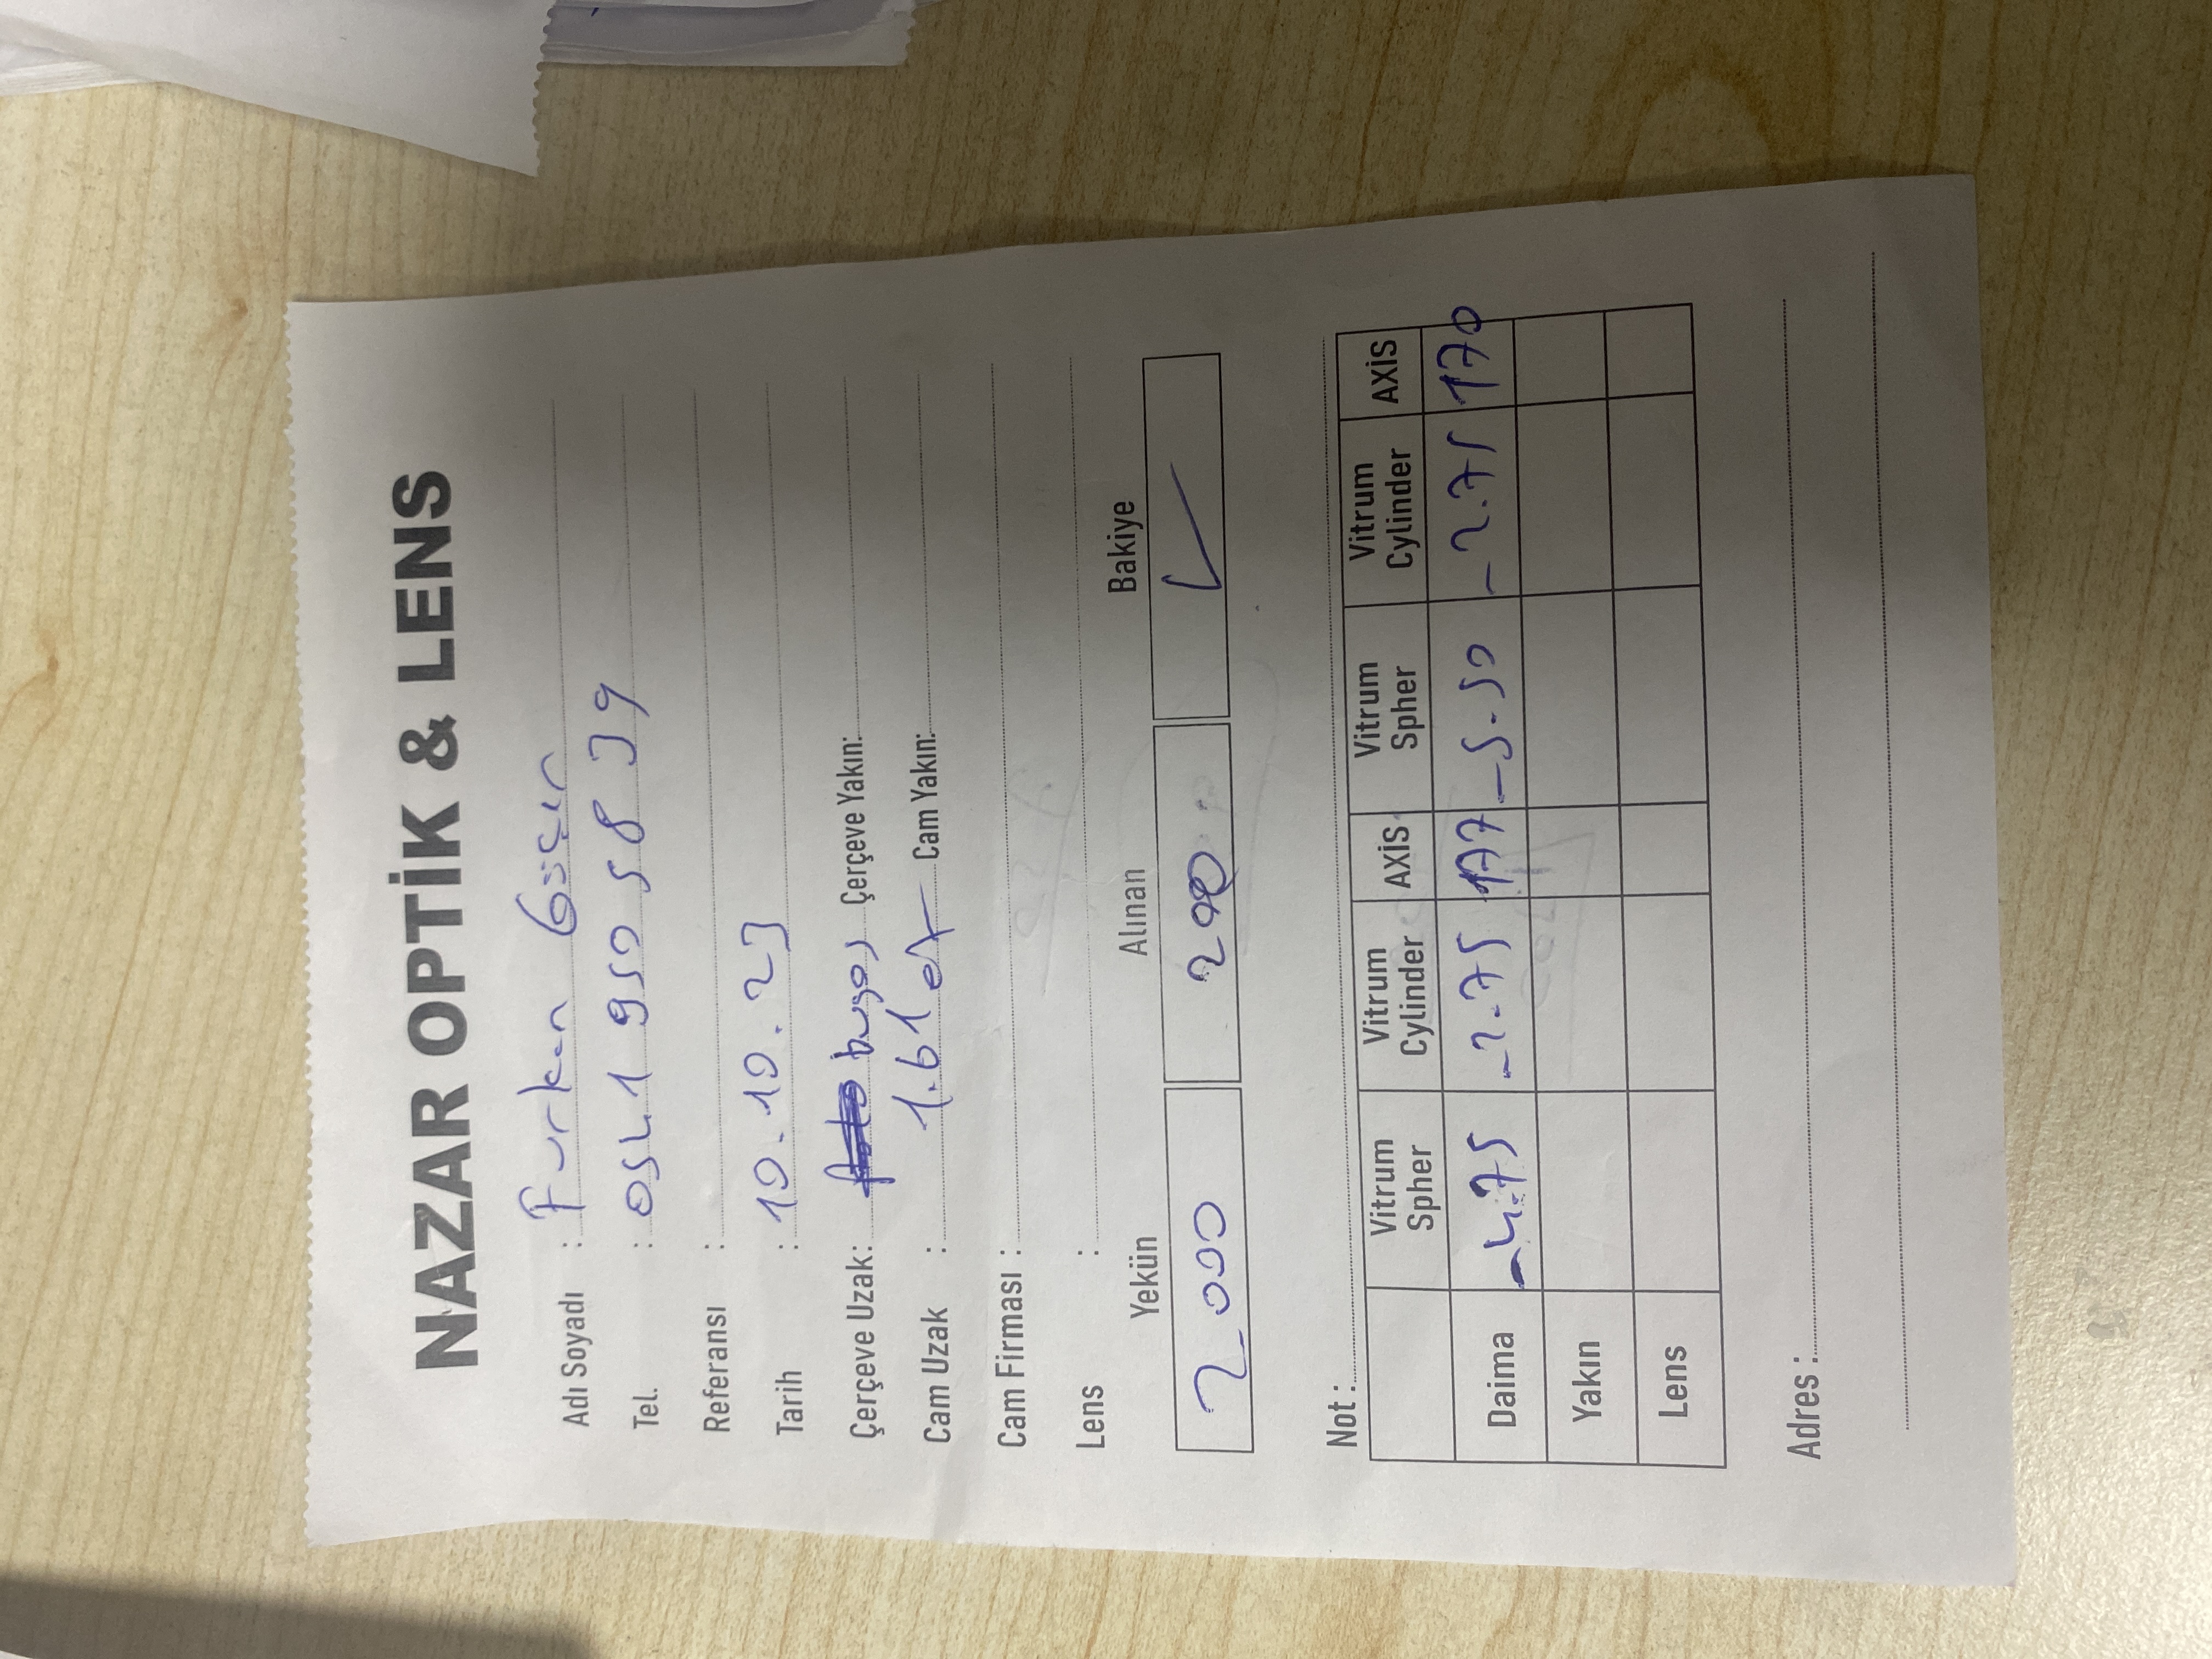 NAZAR OPTİK & LENS
Adı Soyadı : Furkan Göçer
Tel. : 0541 950 58 39
Referansı :
Tarih : 10.10.23
Çerçeve Uzak: Çerçeve Yakın:
Cam Uzak : 1.61 Cam Yakın:
Cam Firması :
Lens :
Yekün Alınan Bakiye
2000 200 ✓
Not :
Vitrum Spher Vitrum Cylinder AXİS Vitrum Spher Vitrum Cylinder AXİS
Daima -4.75 -2.75 177 -5.50 -2.75 170
Yakın
Lens
Adres :